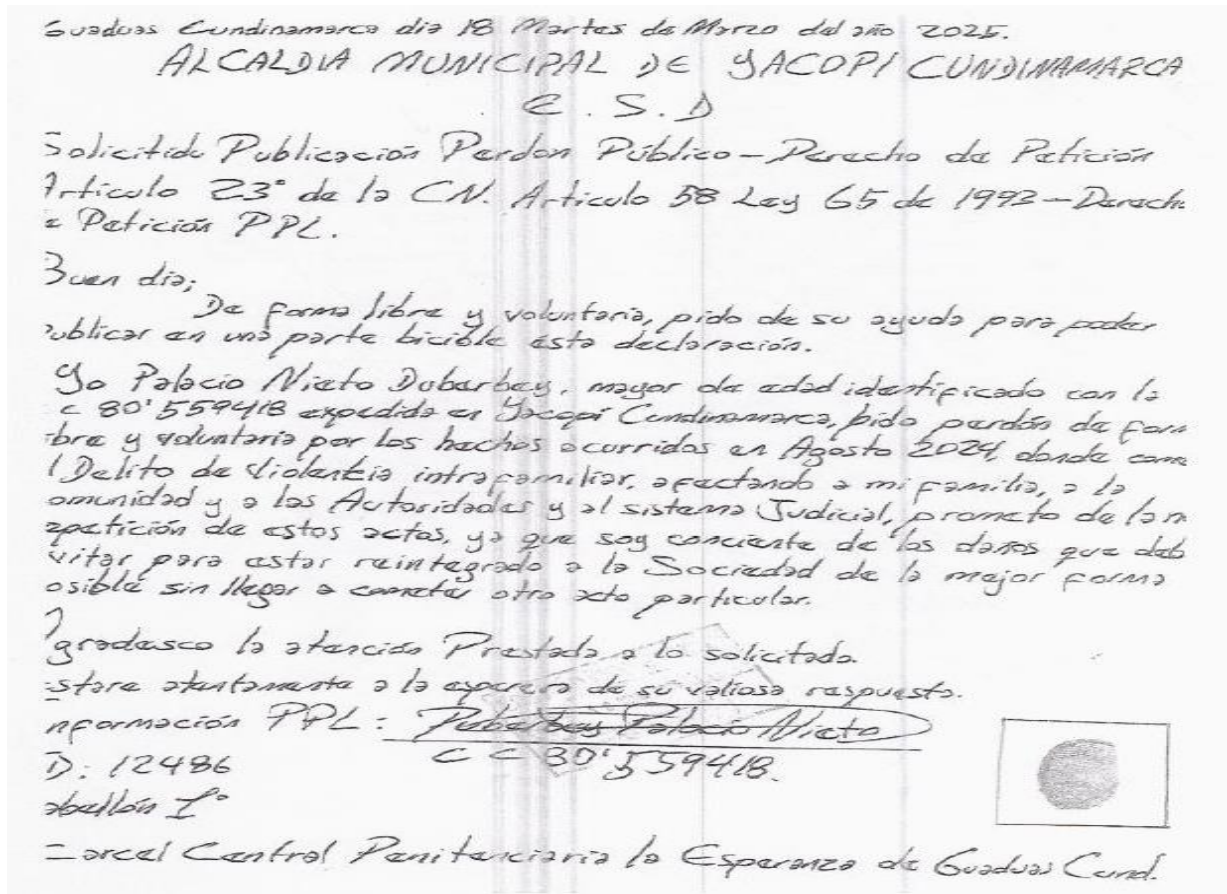 Guaduas Cundinamarca dia 18 Martes de Marzo del año 2025.
ALCALDIA MUNICIPAL DE YACOPI CUNDINAMARCA
E.S.D
Solicitide Publicación Perdon Público - Derecho de Petición
Articulo 23° de la CN. Articulo 58 Ley 65 de 1992 - Derech
e Petición PPL.
Buen dia;
De forma libre y voluntaria, pido de su ayuda para poder
ublicar en una parte bicible esta declaración.
Yo Palacio Nieto Duberbey, mayor de edad identificado con la
c 80'559418 expedida en Yacopí Cundinamarca, pido perdón de form
bre y voluntaria por los hechos ocurridos en Agosto 2024, donde come
l Delito de Violentia intrafamiliar, afectando a mi familia, a la
omunidad y a las Autoridades y al sistema Judicial, prometo de la n
epetición de estos actos, ya que soy conciente de los daños que deb
vitar para estar reintegrado a la Sociedad de la mejor forma
osible sin llegar a cometer otro acto particular.
Agradesco la atención Prestada a lo solicitado.
stare atentamente a la espera de su valiosa respuesta.
nformación PPL: Duberbey Palacio Nieto
D: 12486 CC 80'559418.
abellón 1°
Carcel Central Penitenciaria la Esperanza de Guaduas Cund.